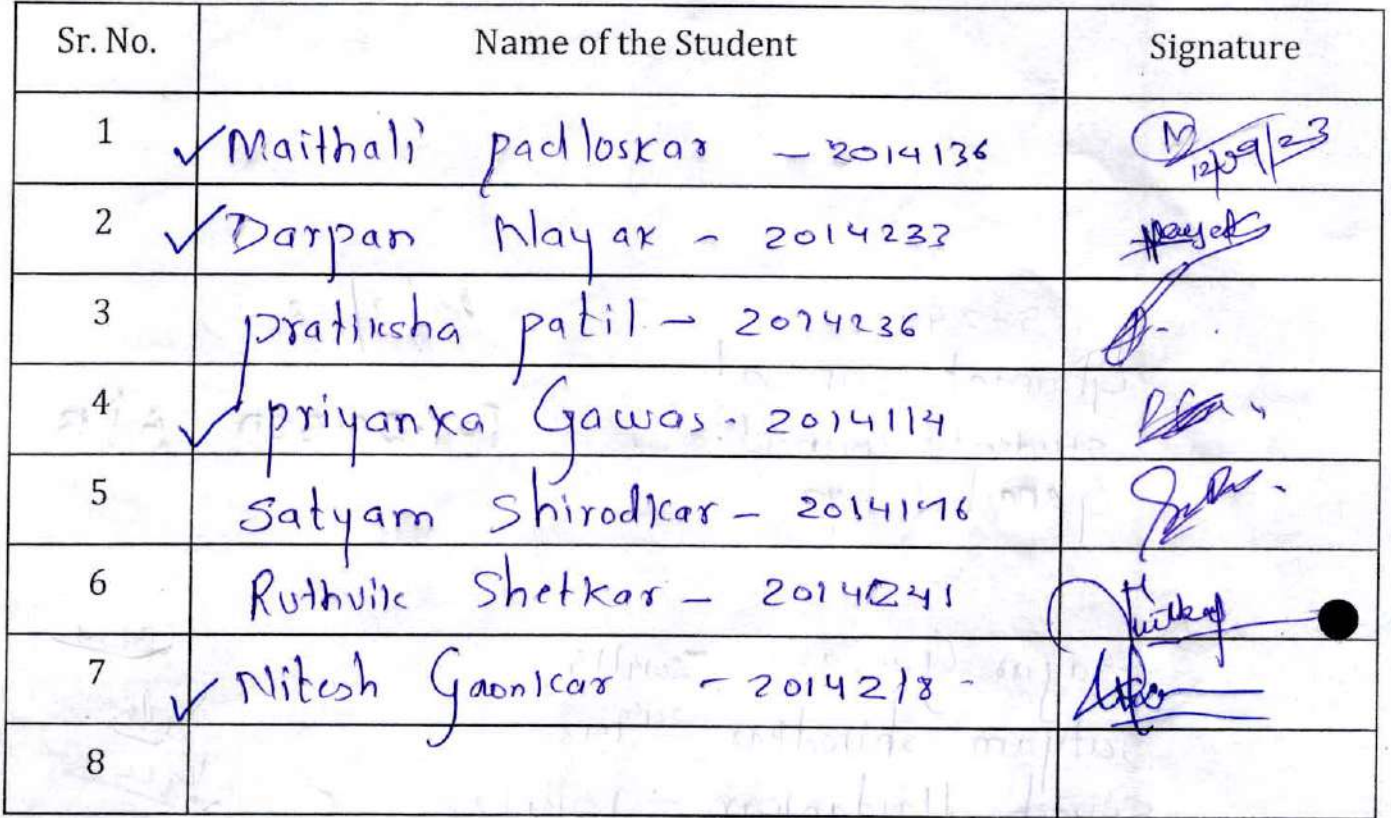 Sr. No. Name of the Student Signature
1 Maithali padloskar - 2014136 12/09/23
2 Darpan Nayak - 2014233 Nayak
3 pratiksha patil - 2014236
4 priyanka Gawas - 2014114
5 Satyam Shirodkar - 2014176
6 Ruthvik Shetkar - 2014241
7 Nitesh Gaonkar - 2014218 -
8